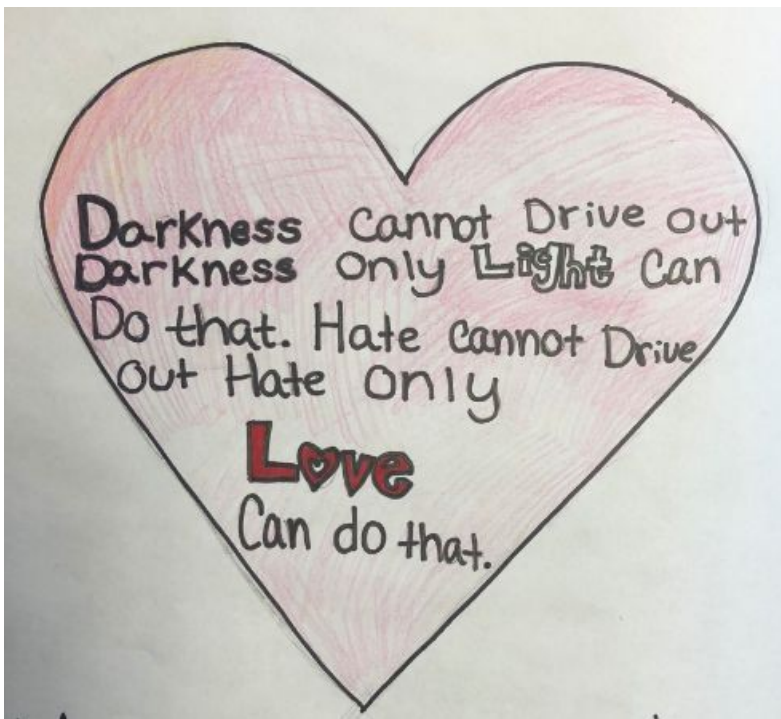 Darkness cannot Drive out
Darkness only Light Can
Do that. Hate cannot Drive
out Hate only
Love
Can do that.